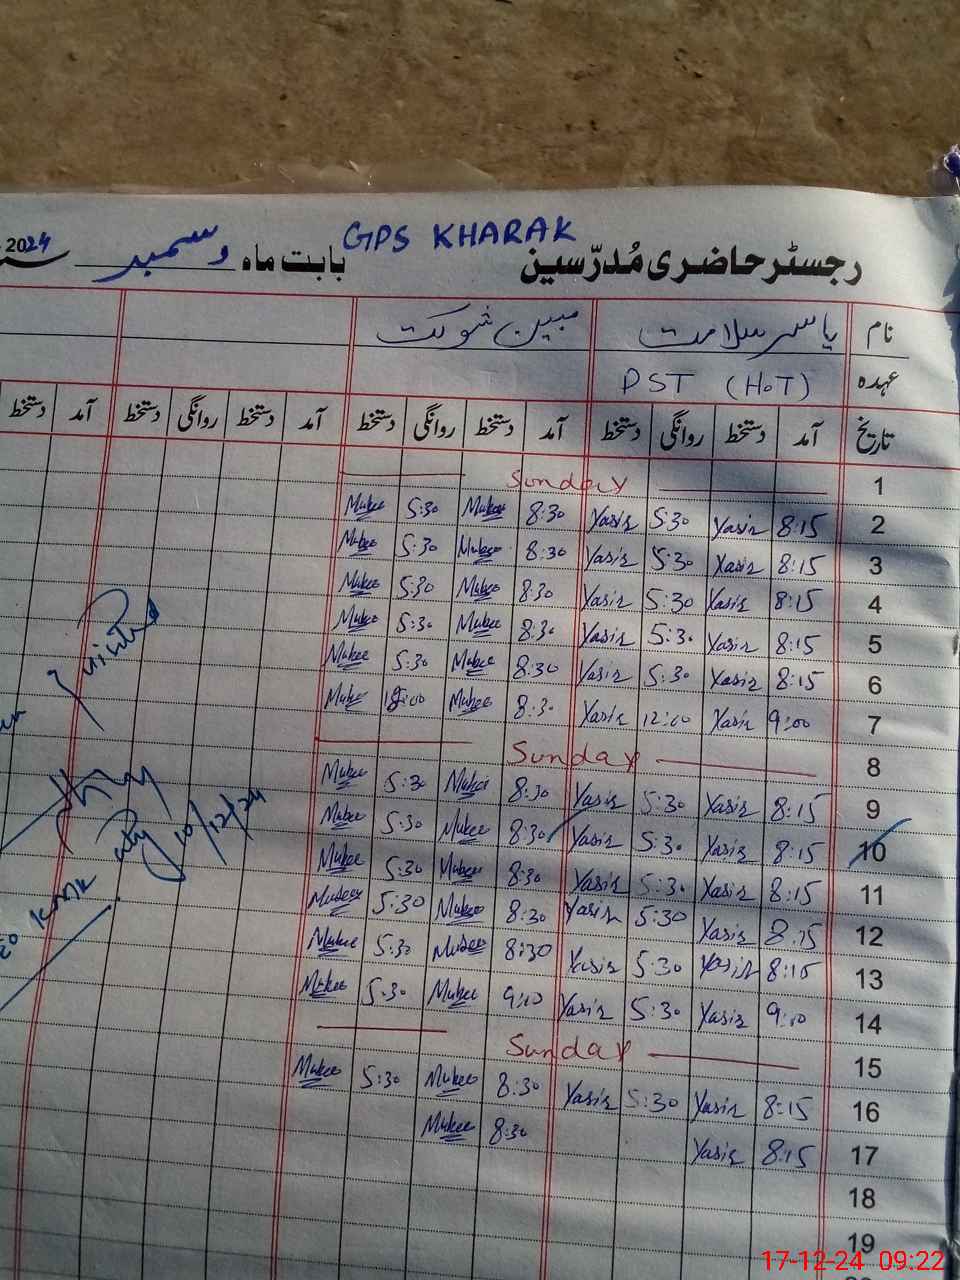 GPS KHARAK
رجسٹر حاضری مُدرّسین بابت ماہ دسمبر 2024
نام یاسر سلامت مبین شوکت
عہدہ PST (HoT)
تاریخ آمد دستخط روانگی دستخط آمد دستخط روانگی دستخط آمد دستخط روانگی دستخط آمد دستخط
1 Sunday
2 8:15 Yasir 5:30 Yasir 8:30 Mubee 5:30 Mubee
3 8:15 Yasir 5:30 Yasir 8:30 Mubee 5:30 Mubee
4 8:15 Yasir 5:30 Yasir 8:30 Mubee 5:30 Mubee
5 8:15 Yasir 5:30 Yasir 8:30 Mubee 5:30 Mubee
6 8:15 Yasir 5:30 Yasir 8:30 Mubee 5:30 Mubee
7 9:00 Yasir 12:00 Yasir 8:30 Mubee 12:00 Mubee
8 Sunday
9 8:15 Yasir 5:30 Yasir 8:30 Mubee 5:30 Mubee
10 8:15 Yasir 5:30 Yasir 8:30 Mubee 5:30 Mubee
11 8:15 Yasir 5:30 Yasir 8:30 Mubee 5:30 Mubee
12 8:15 Yasir 5:30 Yasir 8:30 Mubee 5:30 Mubee
13 8:15 Yasir 5:30 Yasir 8:30 Mubee 5:30 Mubee
14 9:10 Yasir 5:30 Yasir 9:10 Mubee 5:30 Mubee
15 Sunday
16 8:15 Yasir 5:30 Yasir 8:30 Mubee 5:30 Mubee
17 8:15 Yasir 8:30 Mubee
18
19
visited
10/12/24
17-12-24 09:22